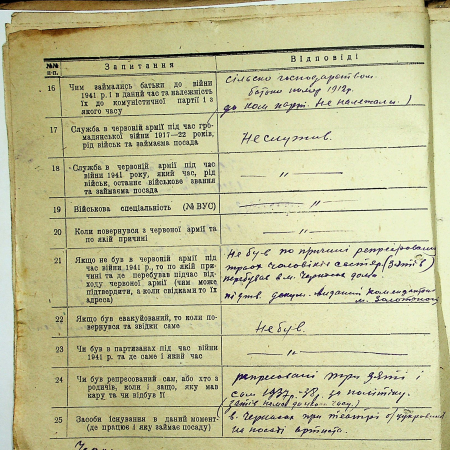 №№ п-п.
Запитання
Відповіді
16
Чим займались батьки до війни
1941 р. і в даний час та належність
їх до комуністичної партії і з
якого часу
сільско господарством.
батько помер 1912р.
до ком парт. Не належали.)
17
Служба в червоній армії під час гро-
мадянської війни 1917—22 років,
рід військ та займаєма посада
Не служив.
18
Служба в червоній армії під час
війни 1941 року, який час, рід
військ, останнє військове звання
та займаєма посада
— „ —
19
Військова спеціальність (№ ВУС)
20
Коли повернувся з червоної армії та
по якій причині
— „ —
21
Якщо не був в червоній армії під
час війни 1941 р., то по якій при-
чині та де перебував підчас від-
ходу червоної армії (чим може
підтвердити, а коли свідками то їх
адреса)
Не був по причині репресировані
трьох чоловіків сестер (Зятів
перебував в м. Черкаси
підтв. докум. видані комендантом
м. Золотоноші
22
Якщо був евакуйований, то коли по-
вернувся та звідки саме
Не був.
23
Чи був в партизанах під час війни
1941 р. та де саме і який час
— „ —
24
Чи був репресований сам, або хто з
родичів, коли і защо, яку мав
кару та чи відбув її
репресовані три зяті і
сам 1937р.-38р. за політику.
25
Засоби існування в даний момент
(де працює і яку займає посаду)
в Черкасах при театрі
на посаді артиста.